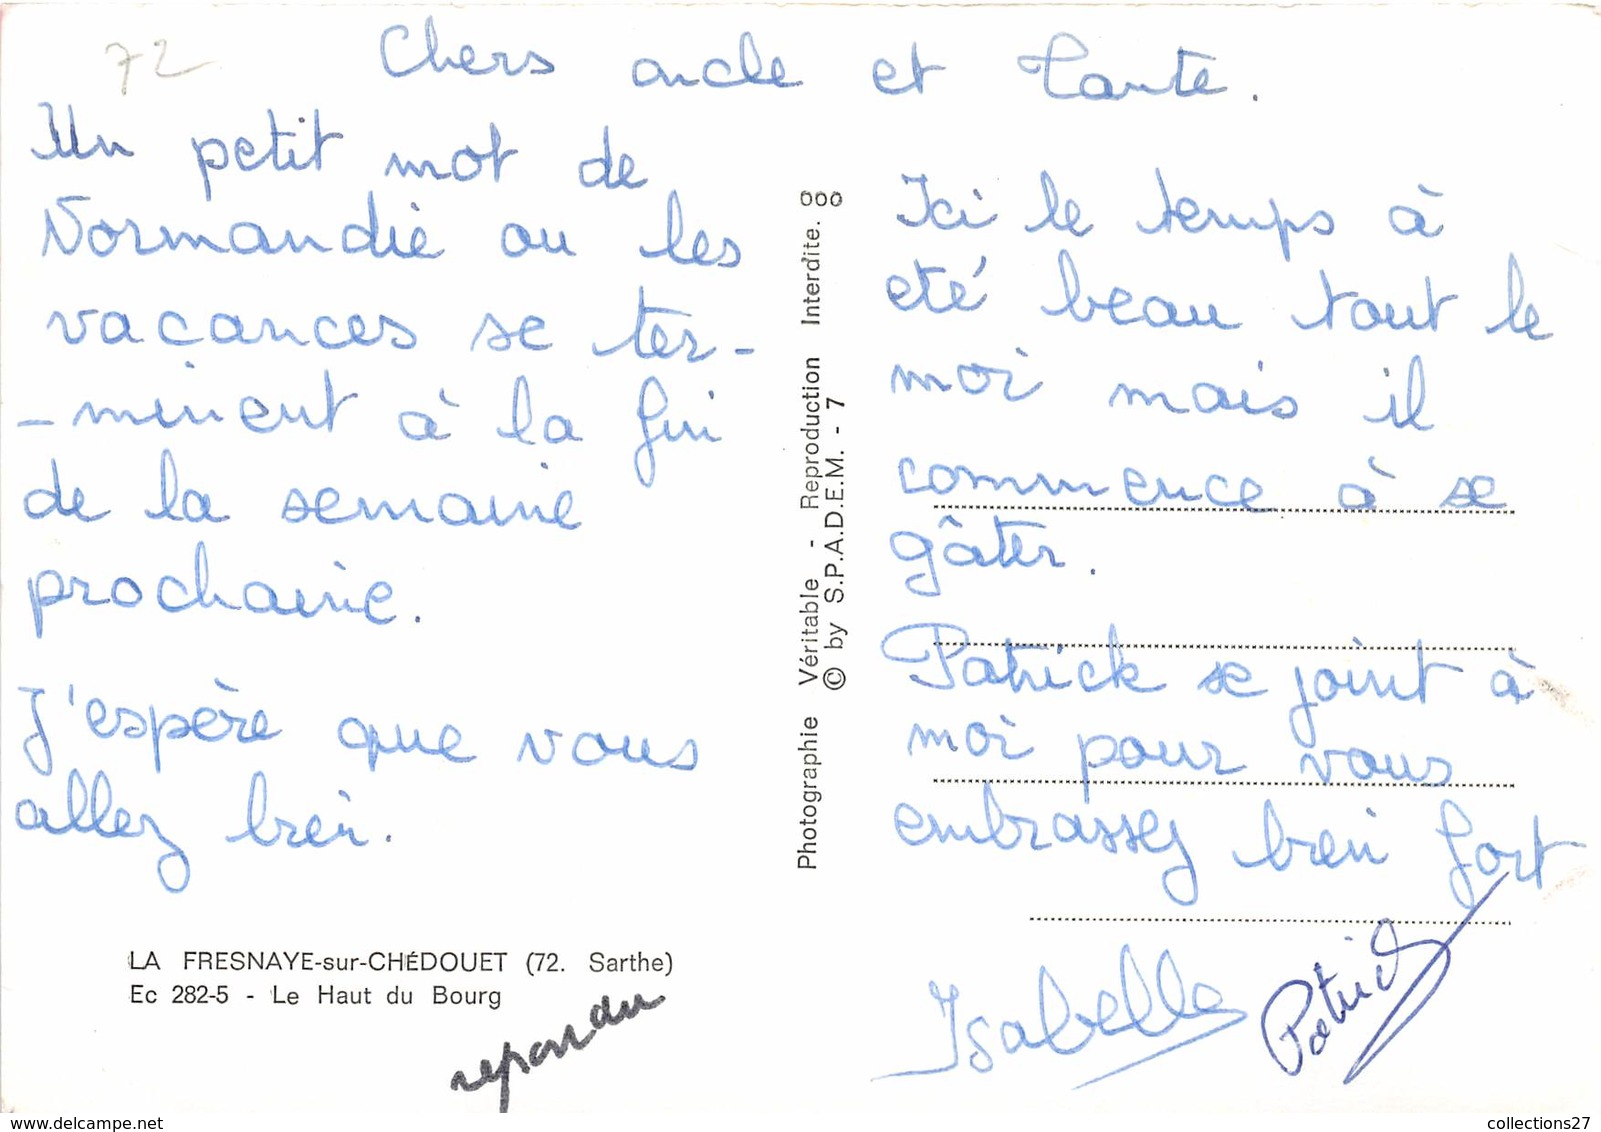 72
Chers oncle et Tante.
Un petit mot de
Normandie ou les
vacances se ter-
-minent à la fin
de la semaine
prochaine.
J'espère que vous
allez bien.
LA FRESNAYE-sur-CHÉDOUET (72. Sarthe)
Ec 282-5 - Le Haut du Bourg
repondu
Photographie Véritable - Reproduction Interdite.
© by S.P.A.D.E.M. - 7
Ici le temps à
eté beau tout le
moi mais il
commence à se
gâter.
Patrick se joint à
moi pour vous
embrassez bien fort
Isabelle
Patrick
collections27